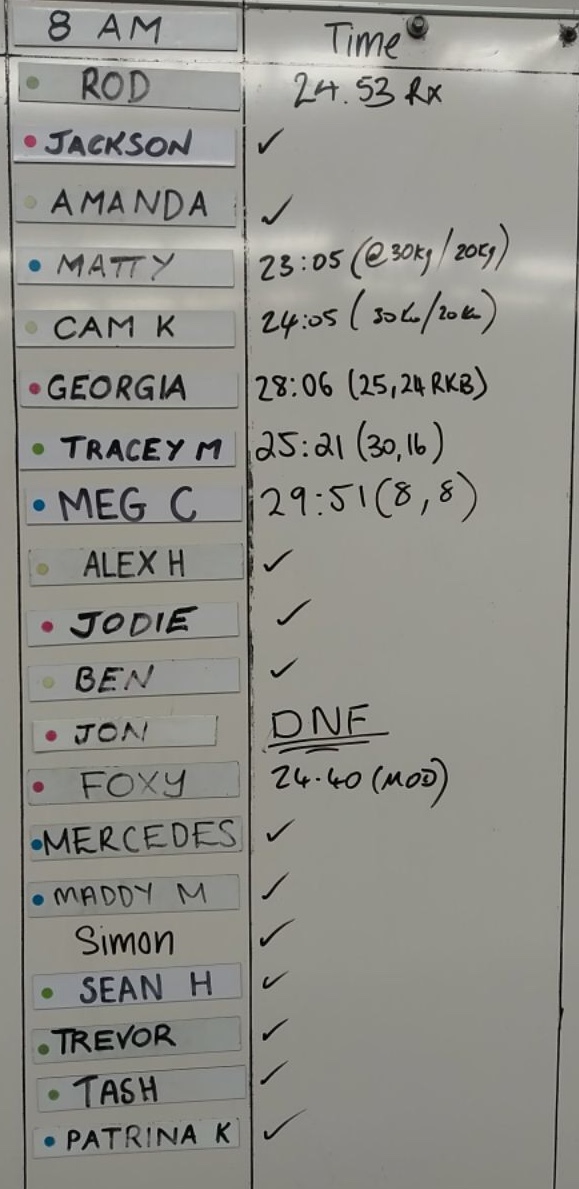 8 AM Time
ROD 24.53 Rx
JACKSON ✓
AMANDA ✓
MATTY 23:05 (@30kg/20kg)
CAM K 24:05 (30kg/20kg)
GEORGIA 28:06 (25,24 RKB)
TRACEY M 25:21 (30,16)
MEG C 29:51 (8,8)
ALEX H ✓
JODIE ✓
BEN ✓
JON DNF
FOXY 24.40 (MOD)
MERCEDES ✓
MADDY M ✓
Simon ✓
SEAN H ✓
TREVOR ✓
TASH ✓
PATRINA K ✓